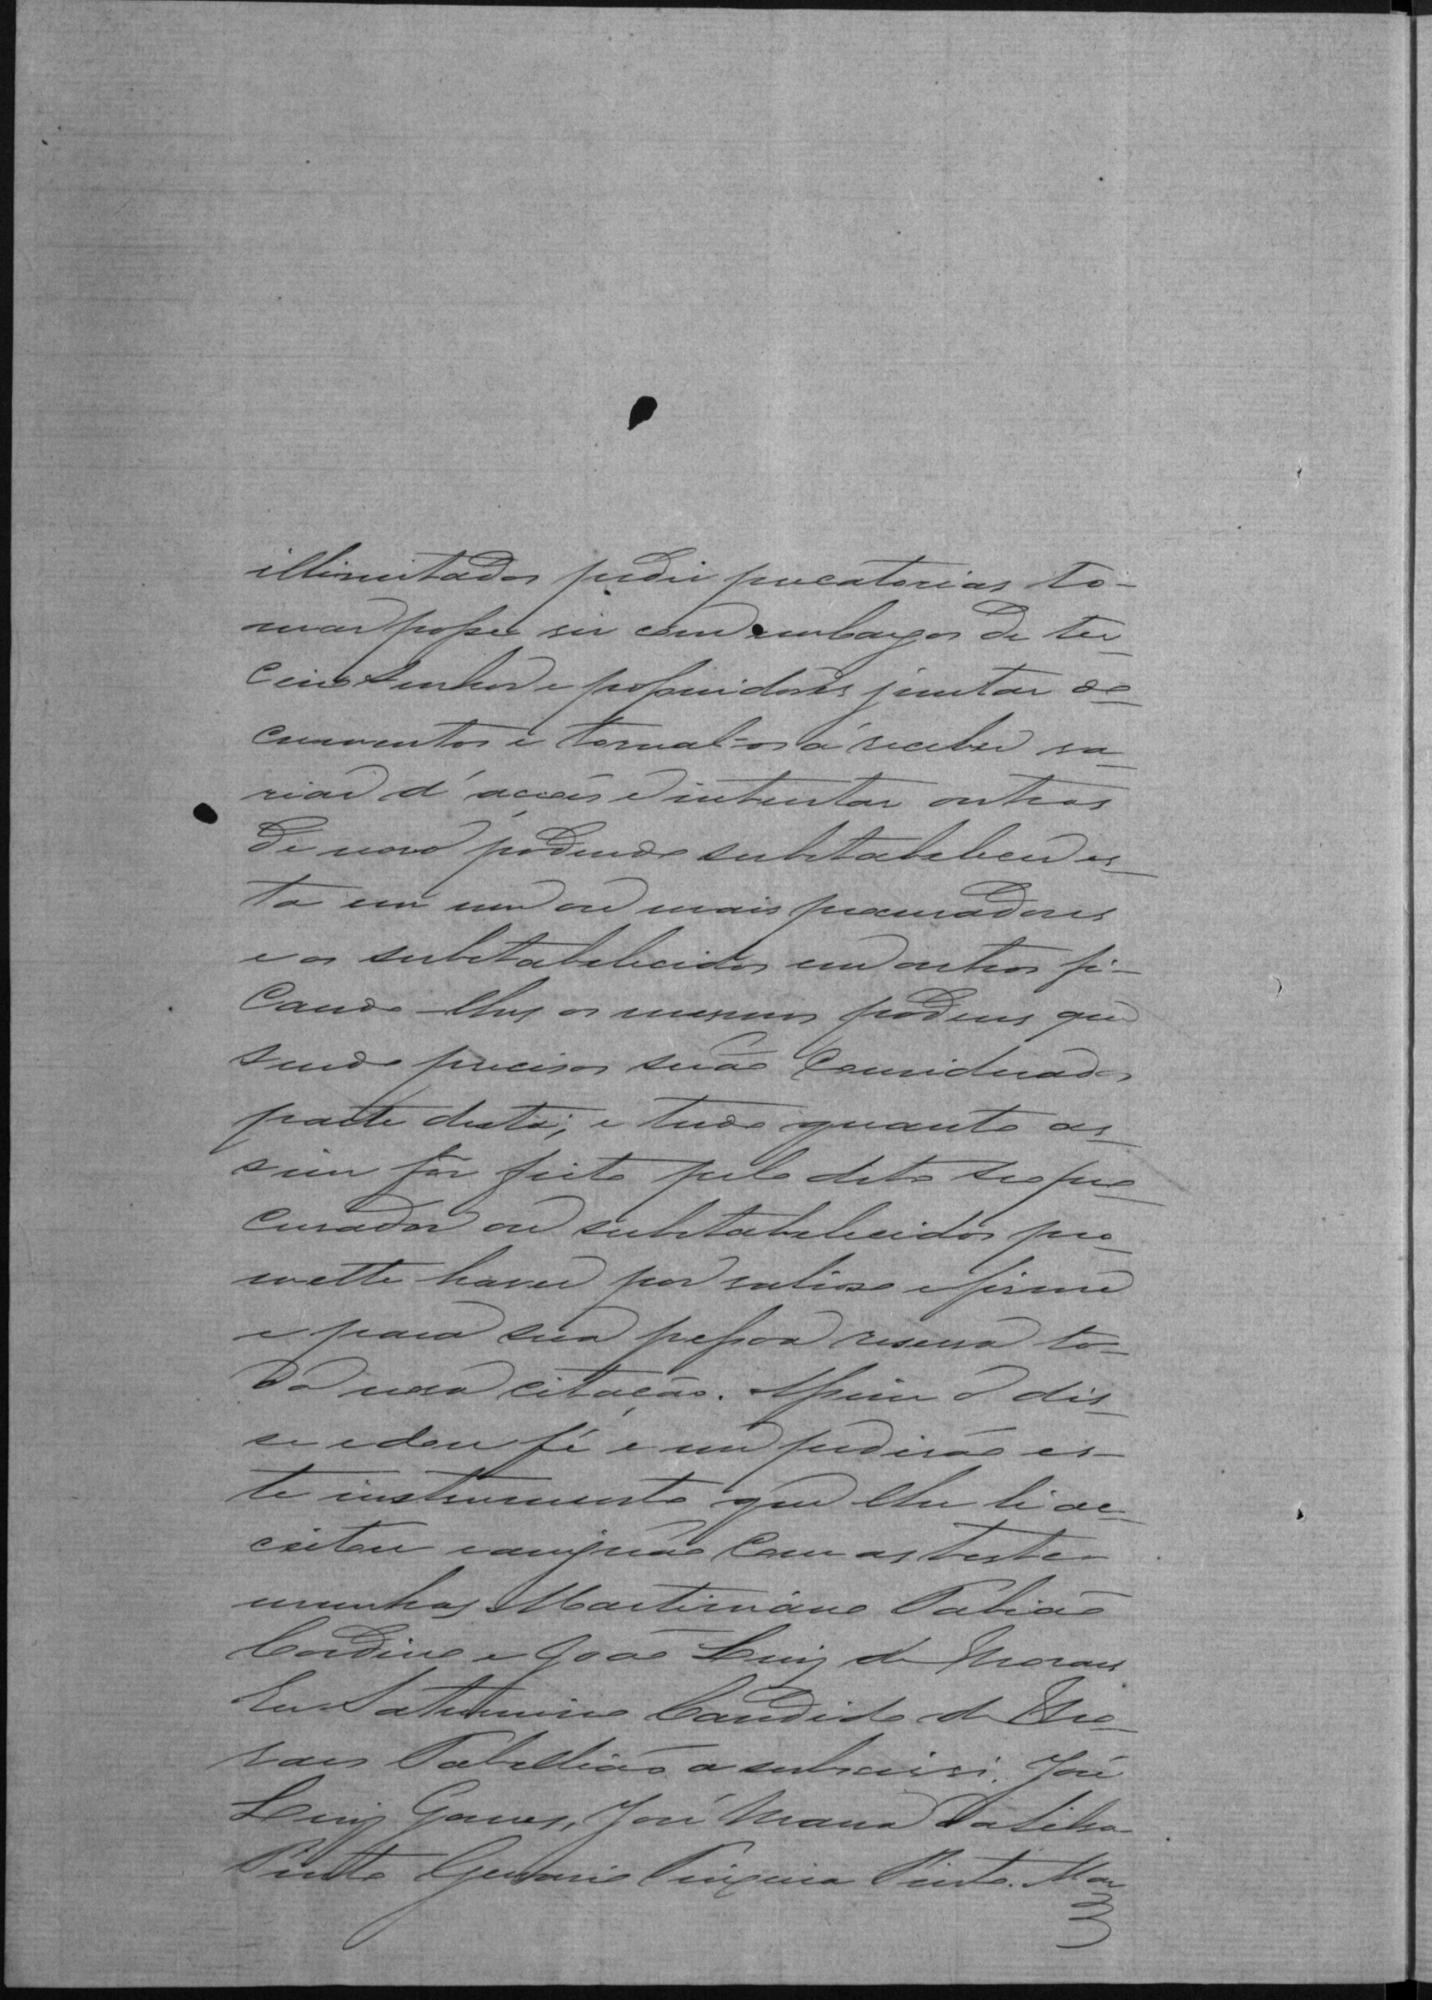 illimitados pedir precatorias to-
mar posse vir com embargos de ter-
ceiro senhor e possuidores juntar do-
cumentos e tornal-os á receber va-
riar d'acções e intentar outras
de novo podendo substabelecer es-
ta em um ou mais procuradores
e os substabelecidos em outros fi-
cando-lhes os mesmos poderes que
sendo precisos serão considerados
parte desta; e tudo quanto as-
sim for feito pelo dito seo pro-
curador ou substabelecidos pro-
mette haver por valioso e firme
e para sua pessoa reserva to-
da nova citação. Assim o dis-
se e dou fé e me pedirão es-
te instrumento que lhe li ac-
ceitou e assignão com as teste-
munhas Martiniano Fabião
Cordeiro e João Luiz de Moraes
Eu Saturnino Candido de Mo-
raes Tabellião o subscrevi. José
Luiz Gomes, José Maria da Silva
Pinto Pinto. Mar